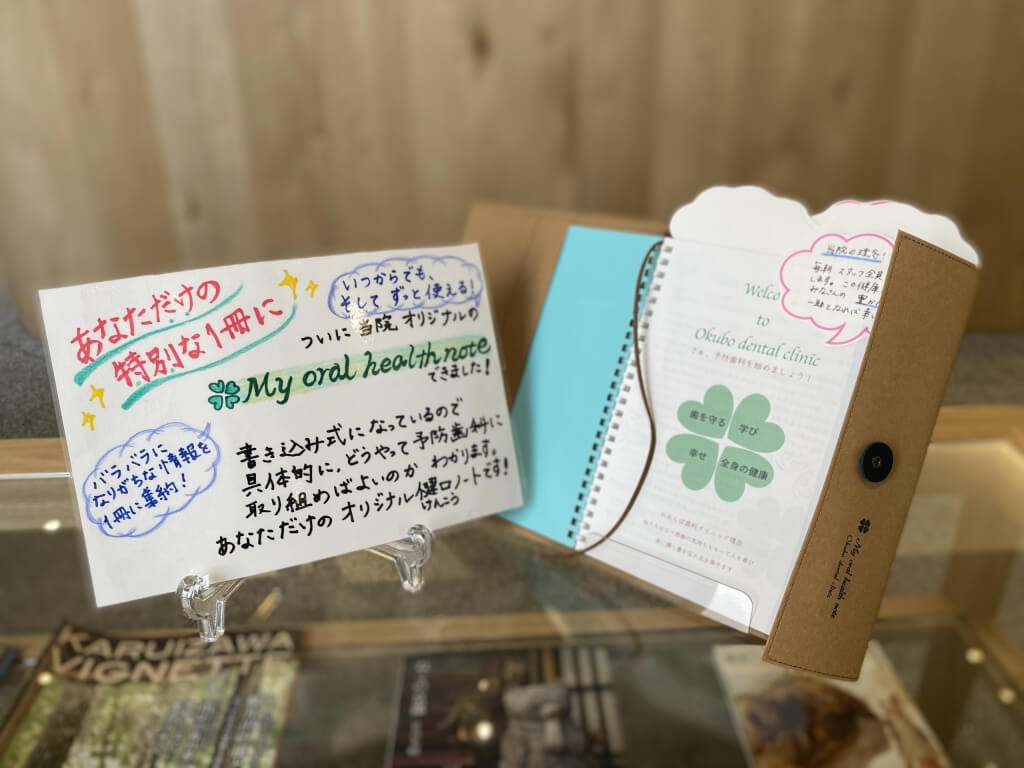 あなただけの
特別な1冊に
いつからでも、
そして ずっと使える!
ついに 当院 オリジナルの
My oral health note
できました!
バラバラに
なりがちな情報を
1冊に集約!
書き込み式になっているので
具体的に、どうやって予防歯科に
取り組めばよいのか わかります。
あなただけの オリジナル健口ノートです!
けんこう
当院の理念!
毎朝 スタッフ全員
します。この健康
みなさんの
一助となれば幸
Welco
to
Okubo dental clinic
さぁ、予防歯科を始めましょう!
歯を守る
学び
幸せ
全身の健康
My oral health note
Okubo dental clinic
KARUIZAWA
VIGNETTE